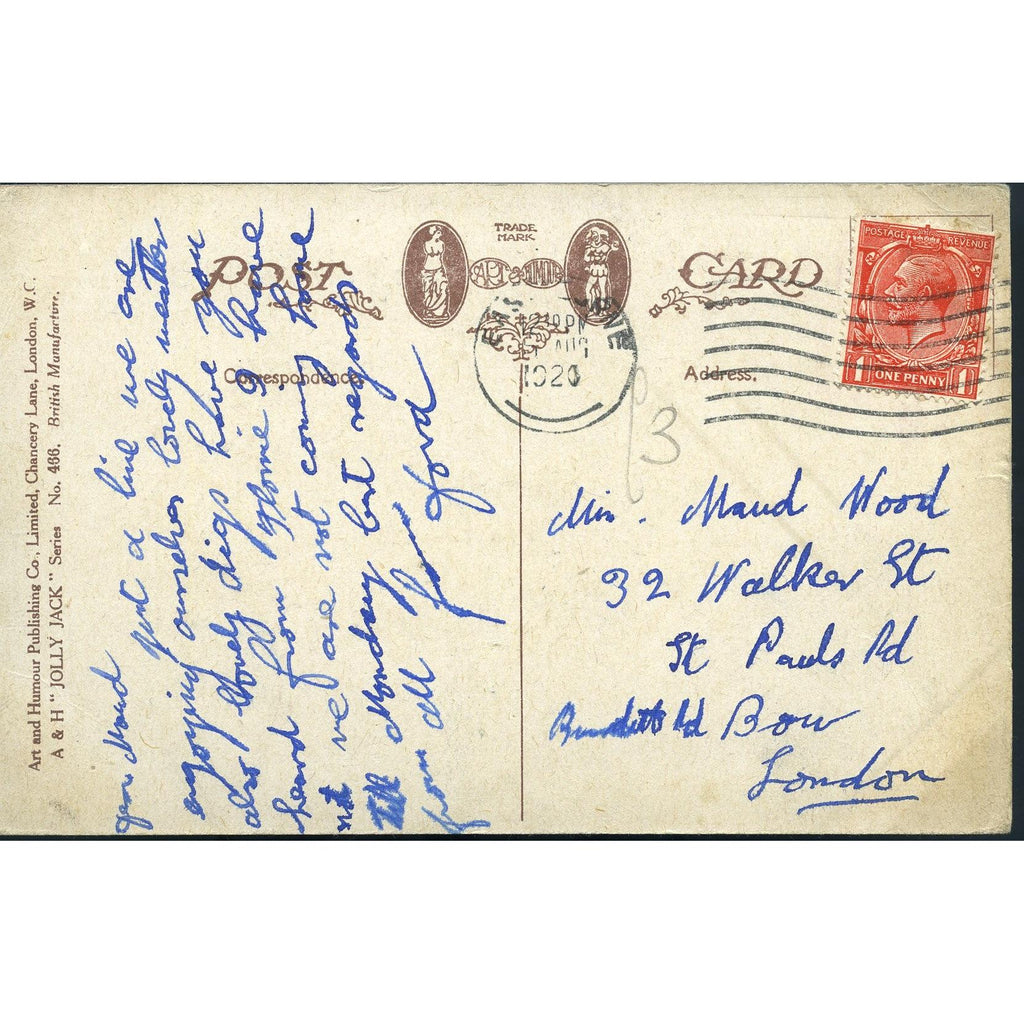 Art and Humour Publishing Co., Limited, Chancery Lane, London, W.C.
A & H "JOLLY JACK" Series No. 466. British Manufacture.
POST CARD
TRADE
MARK
ART & HUMOUR
Correspondence
Address.
Maud just a line we are
enjoying ourselves lovely weather
also lovely digs have you
heard from I have
not we are not coming home
till Monday best regards
from all
PM
AUG
POSTAGE REVENUE
1 ONE PENNY 1
3
Maud Wood
32 Walker St
St Pauls Rd
Burdett Rd Bow
London